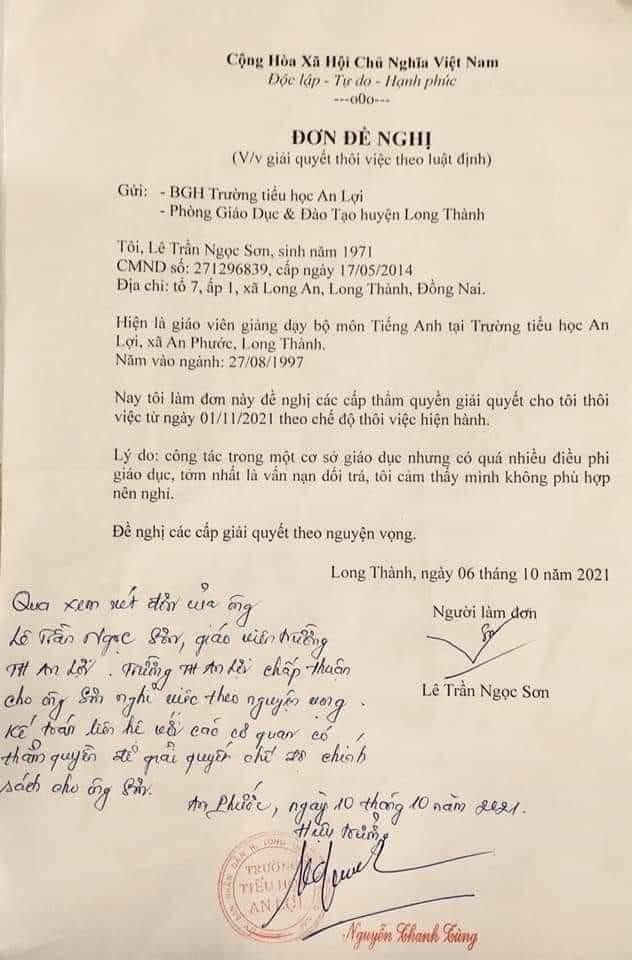 Cộng Hòa Xã Hội Chủ Nghĩa Việt Nam
Độc lập - Tự do - Hạnh phúc
---o0o---
ĐƠN ĐỀ NGHỊ
(V/v giải quyết thôi việc theo luật định)
Gửi: - BGH Trường tiểu học An Lợi
- Phòng Giáo Dục & Đào Tạo huyện Long Thành
Tôi, Lê Trần Ngọc Sơn, sinh năm 1971
CMND số: 271296839, cấp ngày 17/05/2014
Địa chỉ: tổ 7, ấp 1, xã Long An, Long Thành, Đồng Nai.
Hiện là giáo viên giảng dạy bộ môn Tiếng Anh tại Trường tiểu học An
Lợi, xã An Phước, Long Thành.
Năm vào ngành: 27/08/1997
Nay tôi làm đơn này đề nghị các cấp thẩm quyền giải quyết cho tôi thôi
việc từ ngày 01/11/2021 theo chế độ thôi việc hiện hành.
Lý do: công tác trong một cơ sở giáo dục nhưng có quá nhiều điều phi
giáo dục, tởm nhất là vấn nạn dối trá, tôi cảm thấy mình không phù hợp
nên nghỉ.
Đề nghị các cấp giải quyết theo nguyện vọng.
Long Thành, ngày 06 tháng 10 năm 2021
Người làm đơn
Lê Trần Ngọc Sơn
Qua xem xét đơn của ông
Lê Trần Ngọc Sơn, giáo viên trường
TH An Lợi. Trường TH An Lợi chấp thuận
cho ông Sơn nghỉ việc theo nguyện vọng.
Kế toán liên hệ với các cơ quan có
thẩm quyền để giải quyết chế độ chính
sách cho ông Sơn.
An Phước, ngày 10 tháng 10 năm 2021.
Hiệu trưởng
TRƯỜNG
TIỂU HỌC
AN LỢI
Nguyễn Thanh Tùng